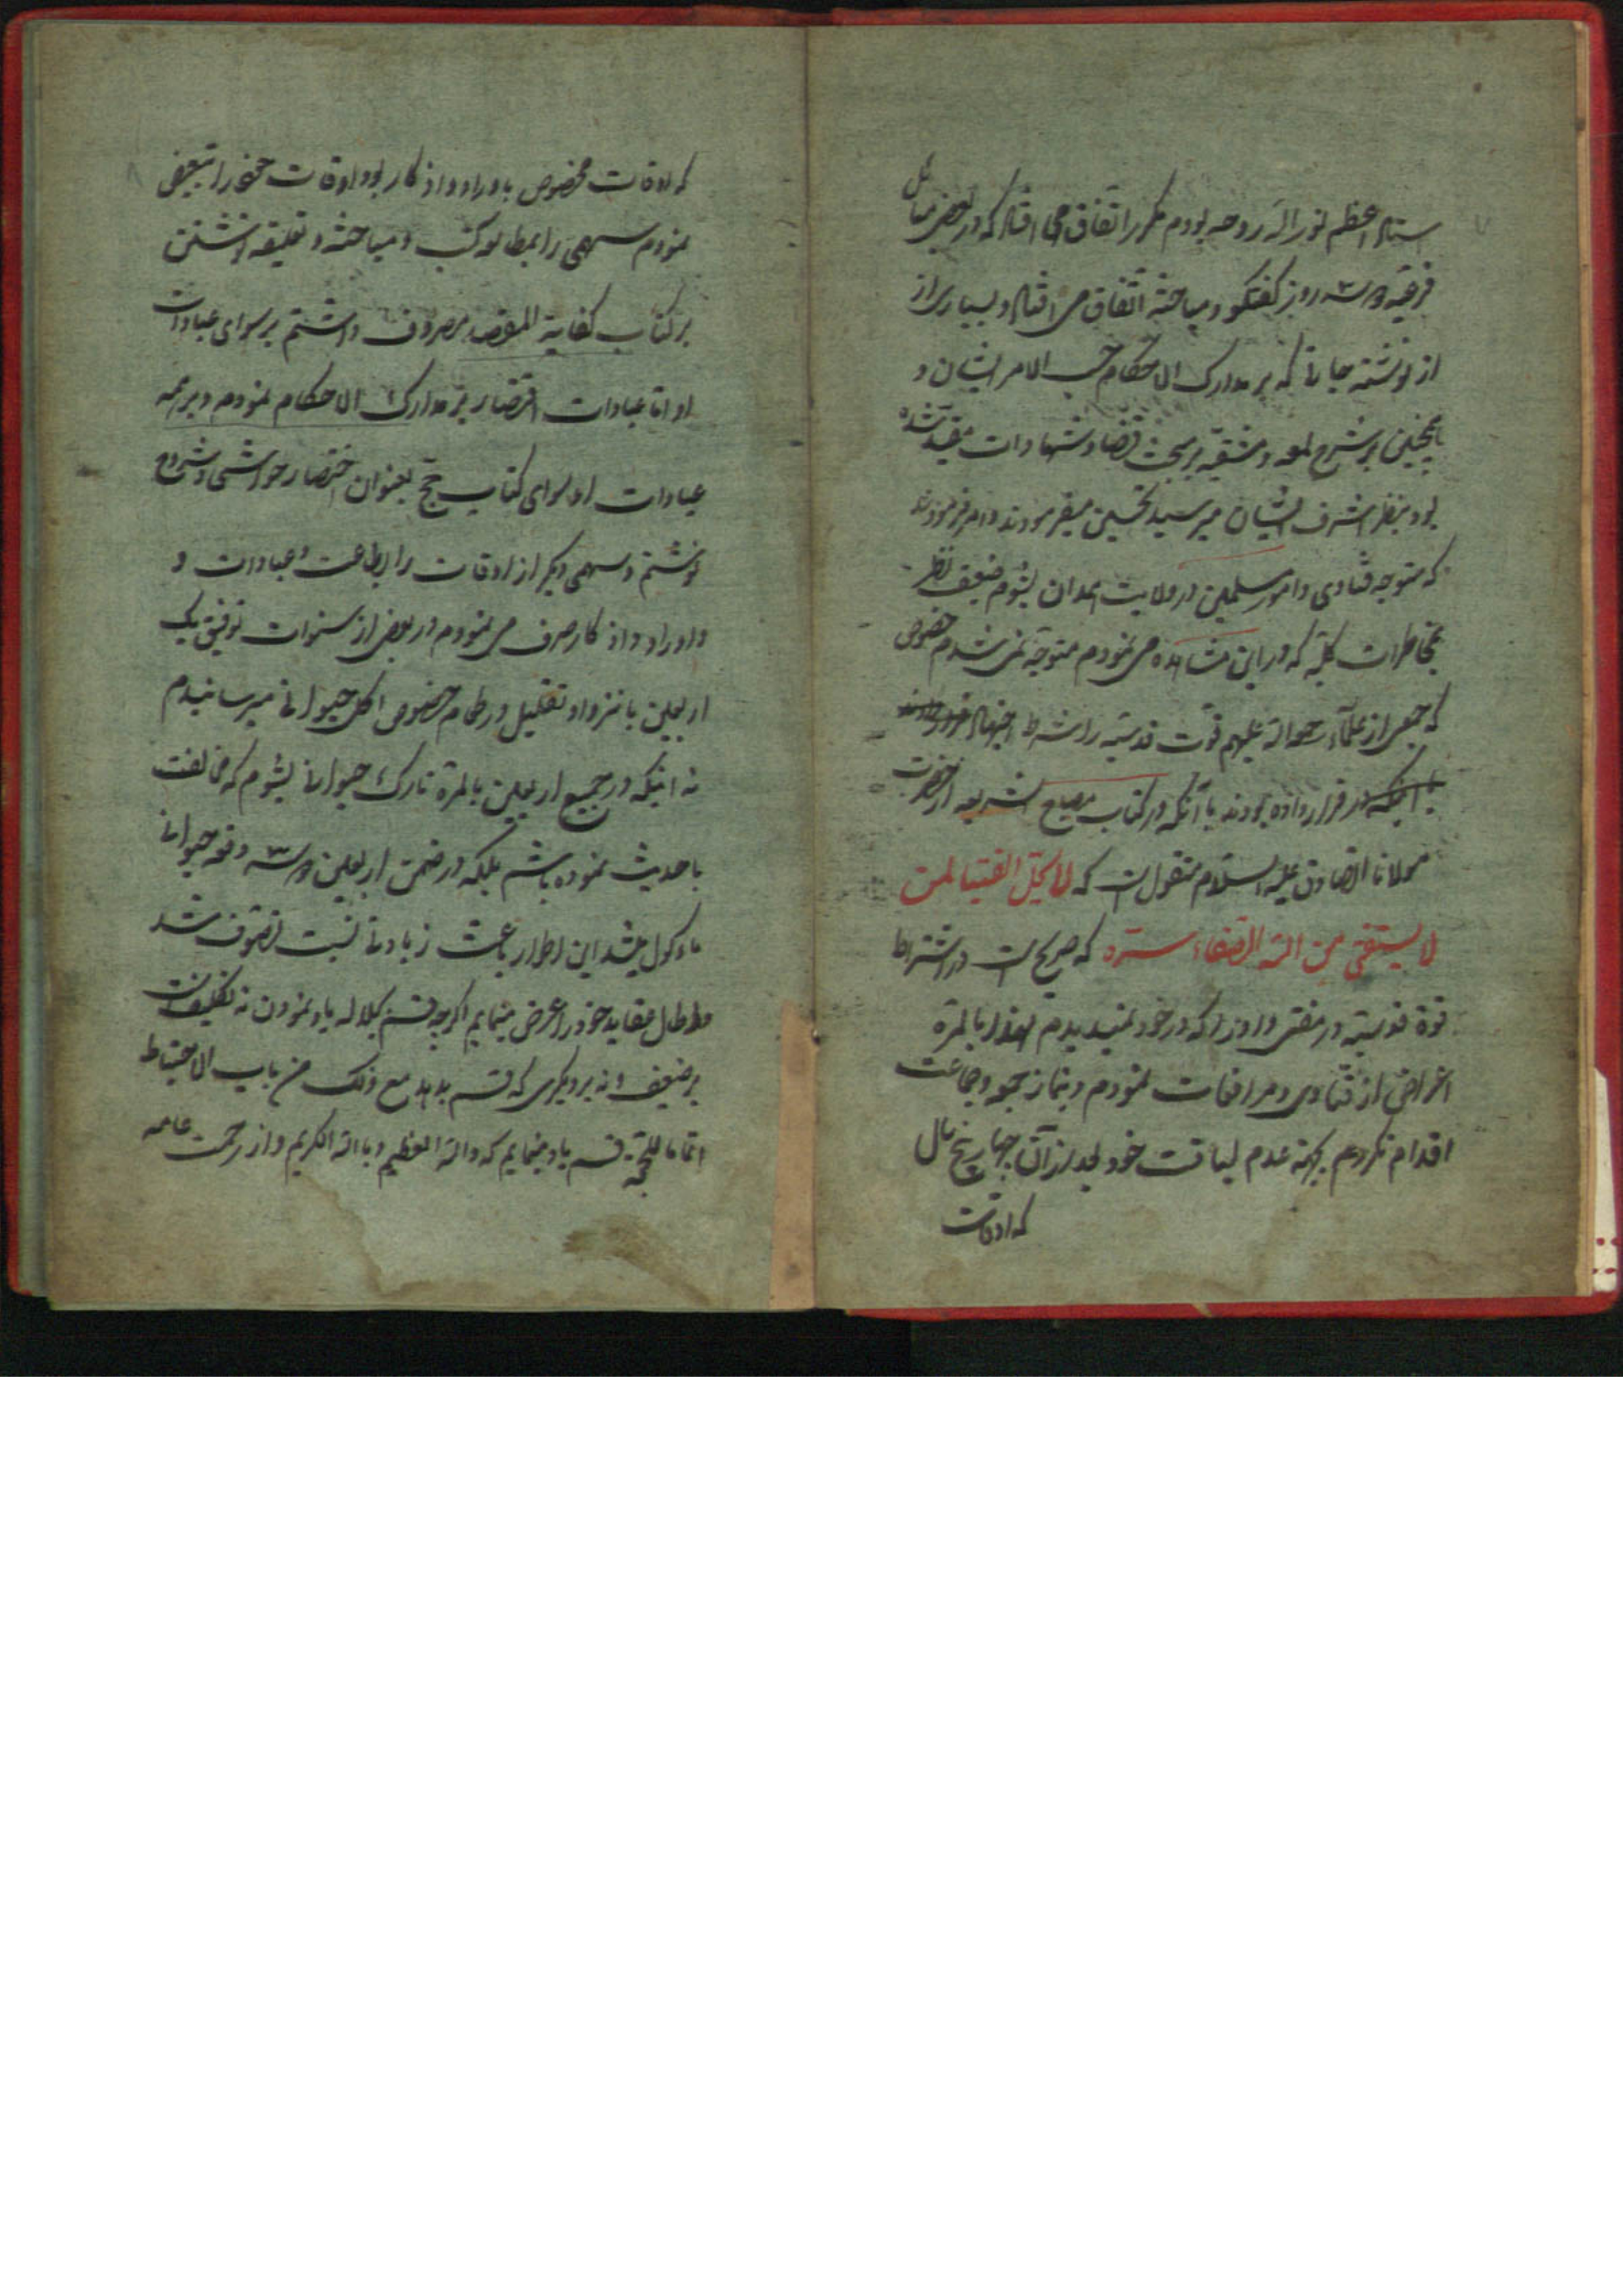 استاد اعظم نور الله روحه بودم مکرر اتفاق می افتاد که در بعضی مسائل
فرعیه دو سه روز گفتگو و مباحثه اتفاق می افتاد و بسیاری از
از نوشته جاتی که بر مدارک الاحکام حسب الامر ایشان و
همچنین بر شرح لمعه دمشقیه بر مبحث قضا و شهادات مقید شده
بود بنظر اشرف ایشان میرسید تحسین میفرمودند و امر فرمودند
که متوجه فتاوی و امور مسلمین در ولایت همدان بشوم ضعیف نظر
بمخاطرات کلیه که در این مشاهده می نمودم متوجه نمی شدم خصوص
که جمعی از علماء رحمة الله علیهم قوت قدسیه را شرط اجتهاد
قرار داده بودند با آنکه در کتاب مصباح الشریعه از حضرت
مولانا الصادق علیه السلام منقول است که لا یحل الفتیا لمن
لا یستفتی من الله الصفاء سره که صریح است در اشتراط
قوة قدسیه در مفتی و اوزا که در خود نمیدیدم لهذا بالمرة
اعراض از فتاوی و مرافعات نمودم و بنماز جمعه و جماعت
اقدام نکردم بجهة عدم لیاقت خود بعد از آن چهار پنج سال
که اوقات
که اوقات مخصوص باوراد و اذکار بود اوقات خود را تبعیض
نمودم سهمی را بمطالعه کتب و مباحثه و تعلیقه نوشتن
بر کتاب کفایة المقتصد مصروف داشتم بر سوای عبادات
او اما عبادات اقتصار بر مدارک الاحکام نمودم و بر همه
عبادات او سوای کتاب حج بعنوان اختصار حواشی و شروح
نوشتم و سهمی دیگر از اوقات را بطاعت و عبادات و
و اوراد و اذکار صرف می نمودم در بعضی از سنوات توفیق یک
اربعین با انزوا و تقلیل در طعام خصوص اکل حیوانی میرسانیدم
نه اینکه در جمیع اربعین بالمرة تارک حیوانی بشوم که مخالفت
با حدیث نموده باشم بلکه در ضمن اربعین دو سه دفعه حیوانی
ماکول میشد این اطوار باعث زیادتی نسبت تصوف شد
عقاید خود را عرض مینمایم اگرچه قسم بجلاله یاد نمودن نه تکلیف است
بر ضعیف و نه بر دیگری که قسم بدهد مع ذلک من باب الاحتیاط
اتماما للحجة قسم یاد مینمایم که والله العظیم و بالله الکریم و از رحمت عامه